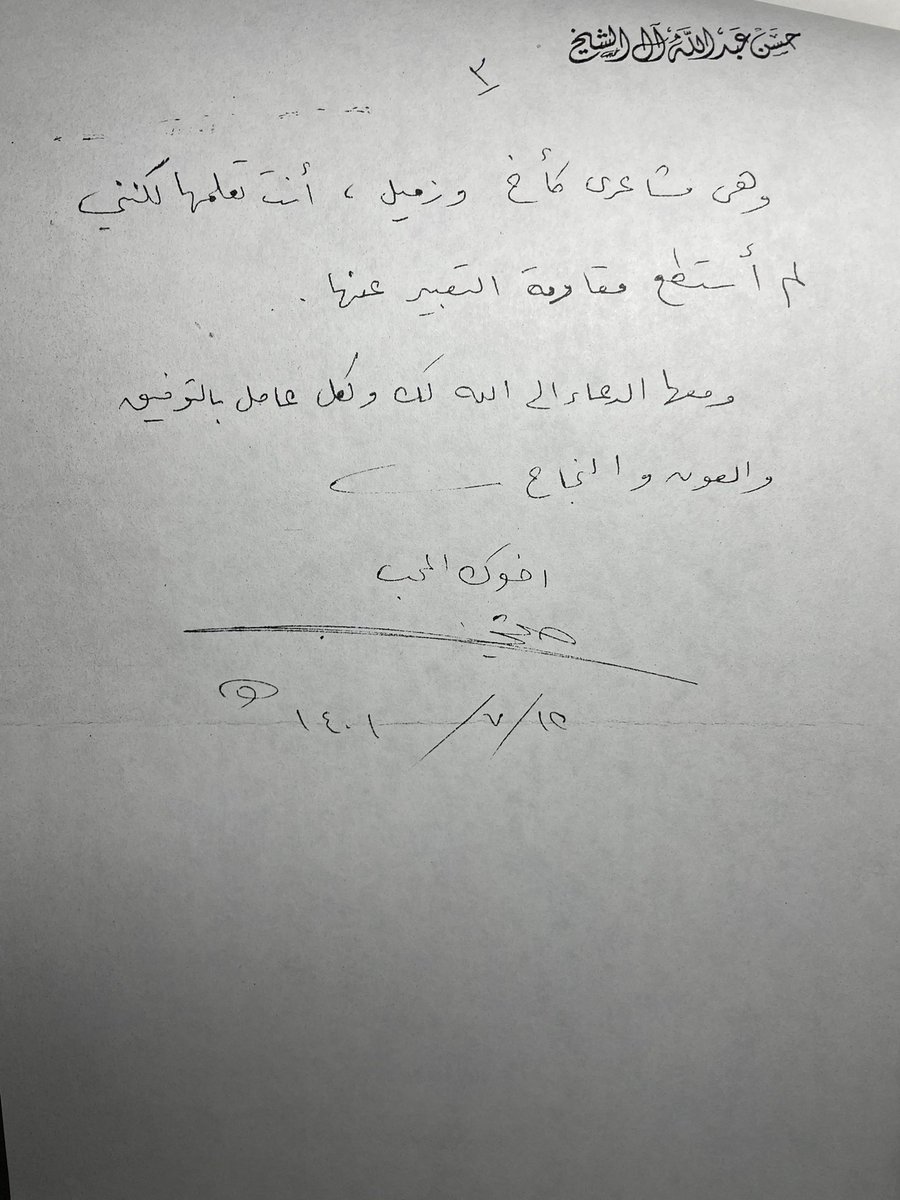 حسن عبدالله آل الشيخ
٣
وهى مشاعرى كأخ وزميل ، أنت تعلمها لكنني
لم أستطع مقاومة التعبير عنها .
ومعها الدعاء الى الله لك ولكل عامل بالتوفيق
والعون والنجاح
اخوك المحب
١٤٠١/٧/١٢